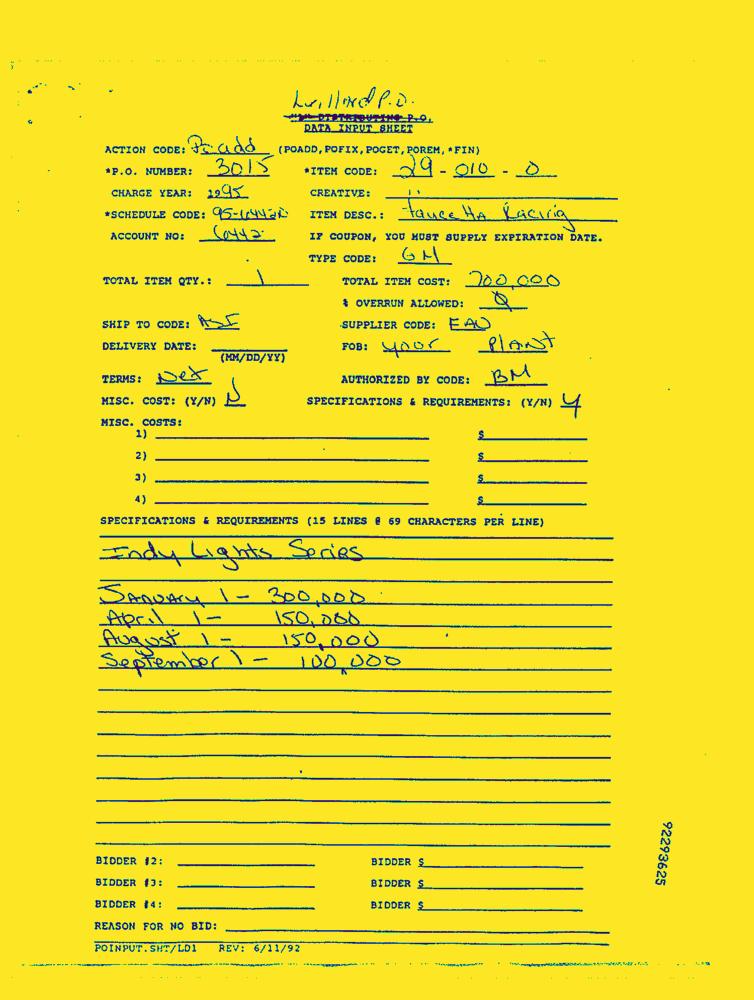 P.O.
"L" DISTRIBUTING P.O.
DATA INPUT SHEET
ACTION CODE: Poadd (POADD,POFIX,POGET,POREM,*FIN)
*P.O. NUMBER: 3015 *ITEM CODE: 29 - 010 - 0
CHARGE YEAR: 1995 CREATIVE:
*SCHEDULE CODE: ITEM DESC.: Racing
ACCOUNT NO: IF COUPON, YOU MUST SUPPLY EXPIRATION DATE.
TYPE CODE: GM
TOTAL ITEM QTY.: 1 TOTAL ITEM COST: 700,000
% OVERRUN ALLOWED: 0
SHIP TO CODE: SUPPLIER CODE:
DELIVERY DATE: FOB: your PLANT
(MM/DD/YY)
TERMS: Net AUTHORIZED BY CODE: BM
MISC. COST: (Y/N) N SPECIFICATIONS & REQUIREMENTS: (Y/N) Y
MISC. COSTS:
1) $
2) $
3) $
4) $
SPECIFICATIONS & REQUIREMENTS (15 LINES @ 69 CHARACTERS PER LINE)
Indy Lights Series
January 1 - 300,000
April 1 - 150,000
August 1 - 150,000
September 1 - 100,000
BIDDER #2: BIDDER $
BIDDER #3: BIDDER $
BIDDER #4: BIDDER $
REASON FOR NO BID:
POINPUT.SHT/LD1 REV: 6/11/92
92293625